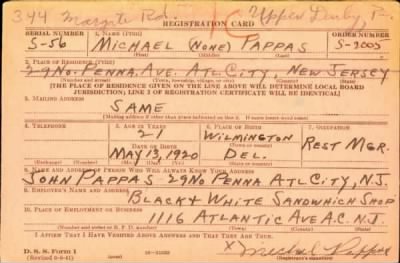 344 Margate Rd. Upper Darby, Pa.
REGISTRATION CARD
SERIAL NUMBER 1. NAME (Print) ORDER NUMBER
S-56 MICHAEL (NONE) PAPPAS S-2005
2. PLACE OF RESIDENCE (Print)
29 NO. PENNA. AVE. ATL. CITY, NEW JERSEY
(Number and street) (Town, township, village, or city) (County) (State)
[THE PLACE OF RESIDENCE GIVEN ON THE LINE ABOVE WILL DETERMINE LOCAL BOARD
JURISDICTION; LINE 2 OF REGISTRATION CERTIFICATE WILL BE IDENTICAL]
3. MAILING ADDRESS
SAME
[Mailing address if other than place indicated on line 2. If same insert word same]
4. TELEPHONE 5. AGE IN YEARS 6. PLACE OF BIRTH 7. OCCUPATION
21 WILMINGTON REST MGR.
DATE OF BIRTH (Town or county)
MAY 13, 1920 DEL.
(Exchange) (Number) (Mo.) (Day) (Yr.) (State or country)
8. NAME AND ADDRESS OF PERSON WHO WILL ALWAYS KNOW YOUR ADDRESS
JOHN PAPPAS - 29 NO PENNA ATL CITY, N.J.
9. EMPLOYER'S NAME AND ADDRESS
BLACK & WHITE SANDWHICH SHOP
10. PLACE OF EMPLOYMENT OR BUSINESS
1116 ATLANTIC AVE A.C. N.J.
(Number and street or R. F. D. number) (Town) (County) (State)
I AFFIRM THAT I HAVE VERIFIED ABOVE ANSWERS AND THAT THEY ARE TRUE.
D. S. S. Form 1
X Michael Pappas
(Registrant's signature)